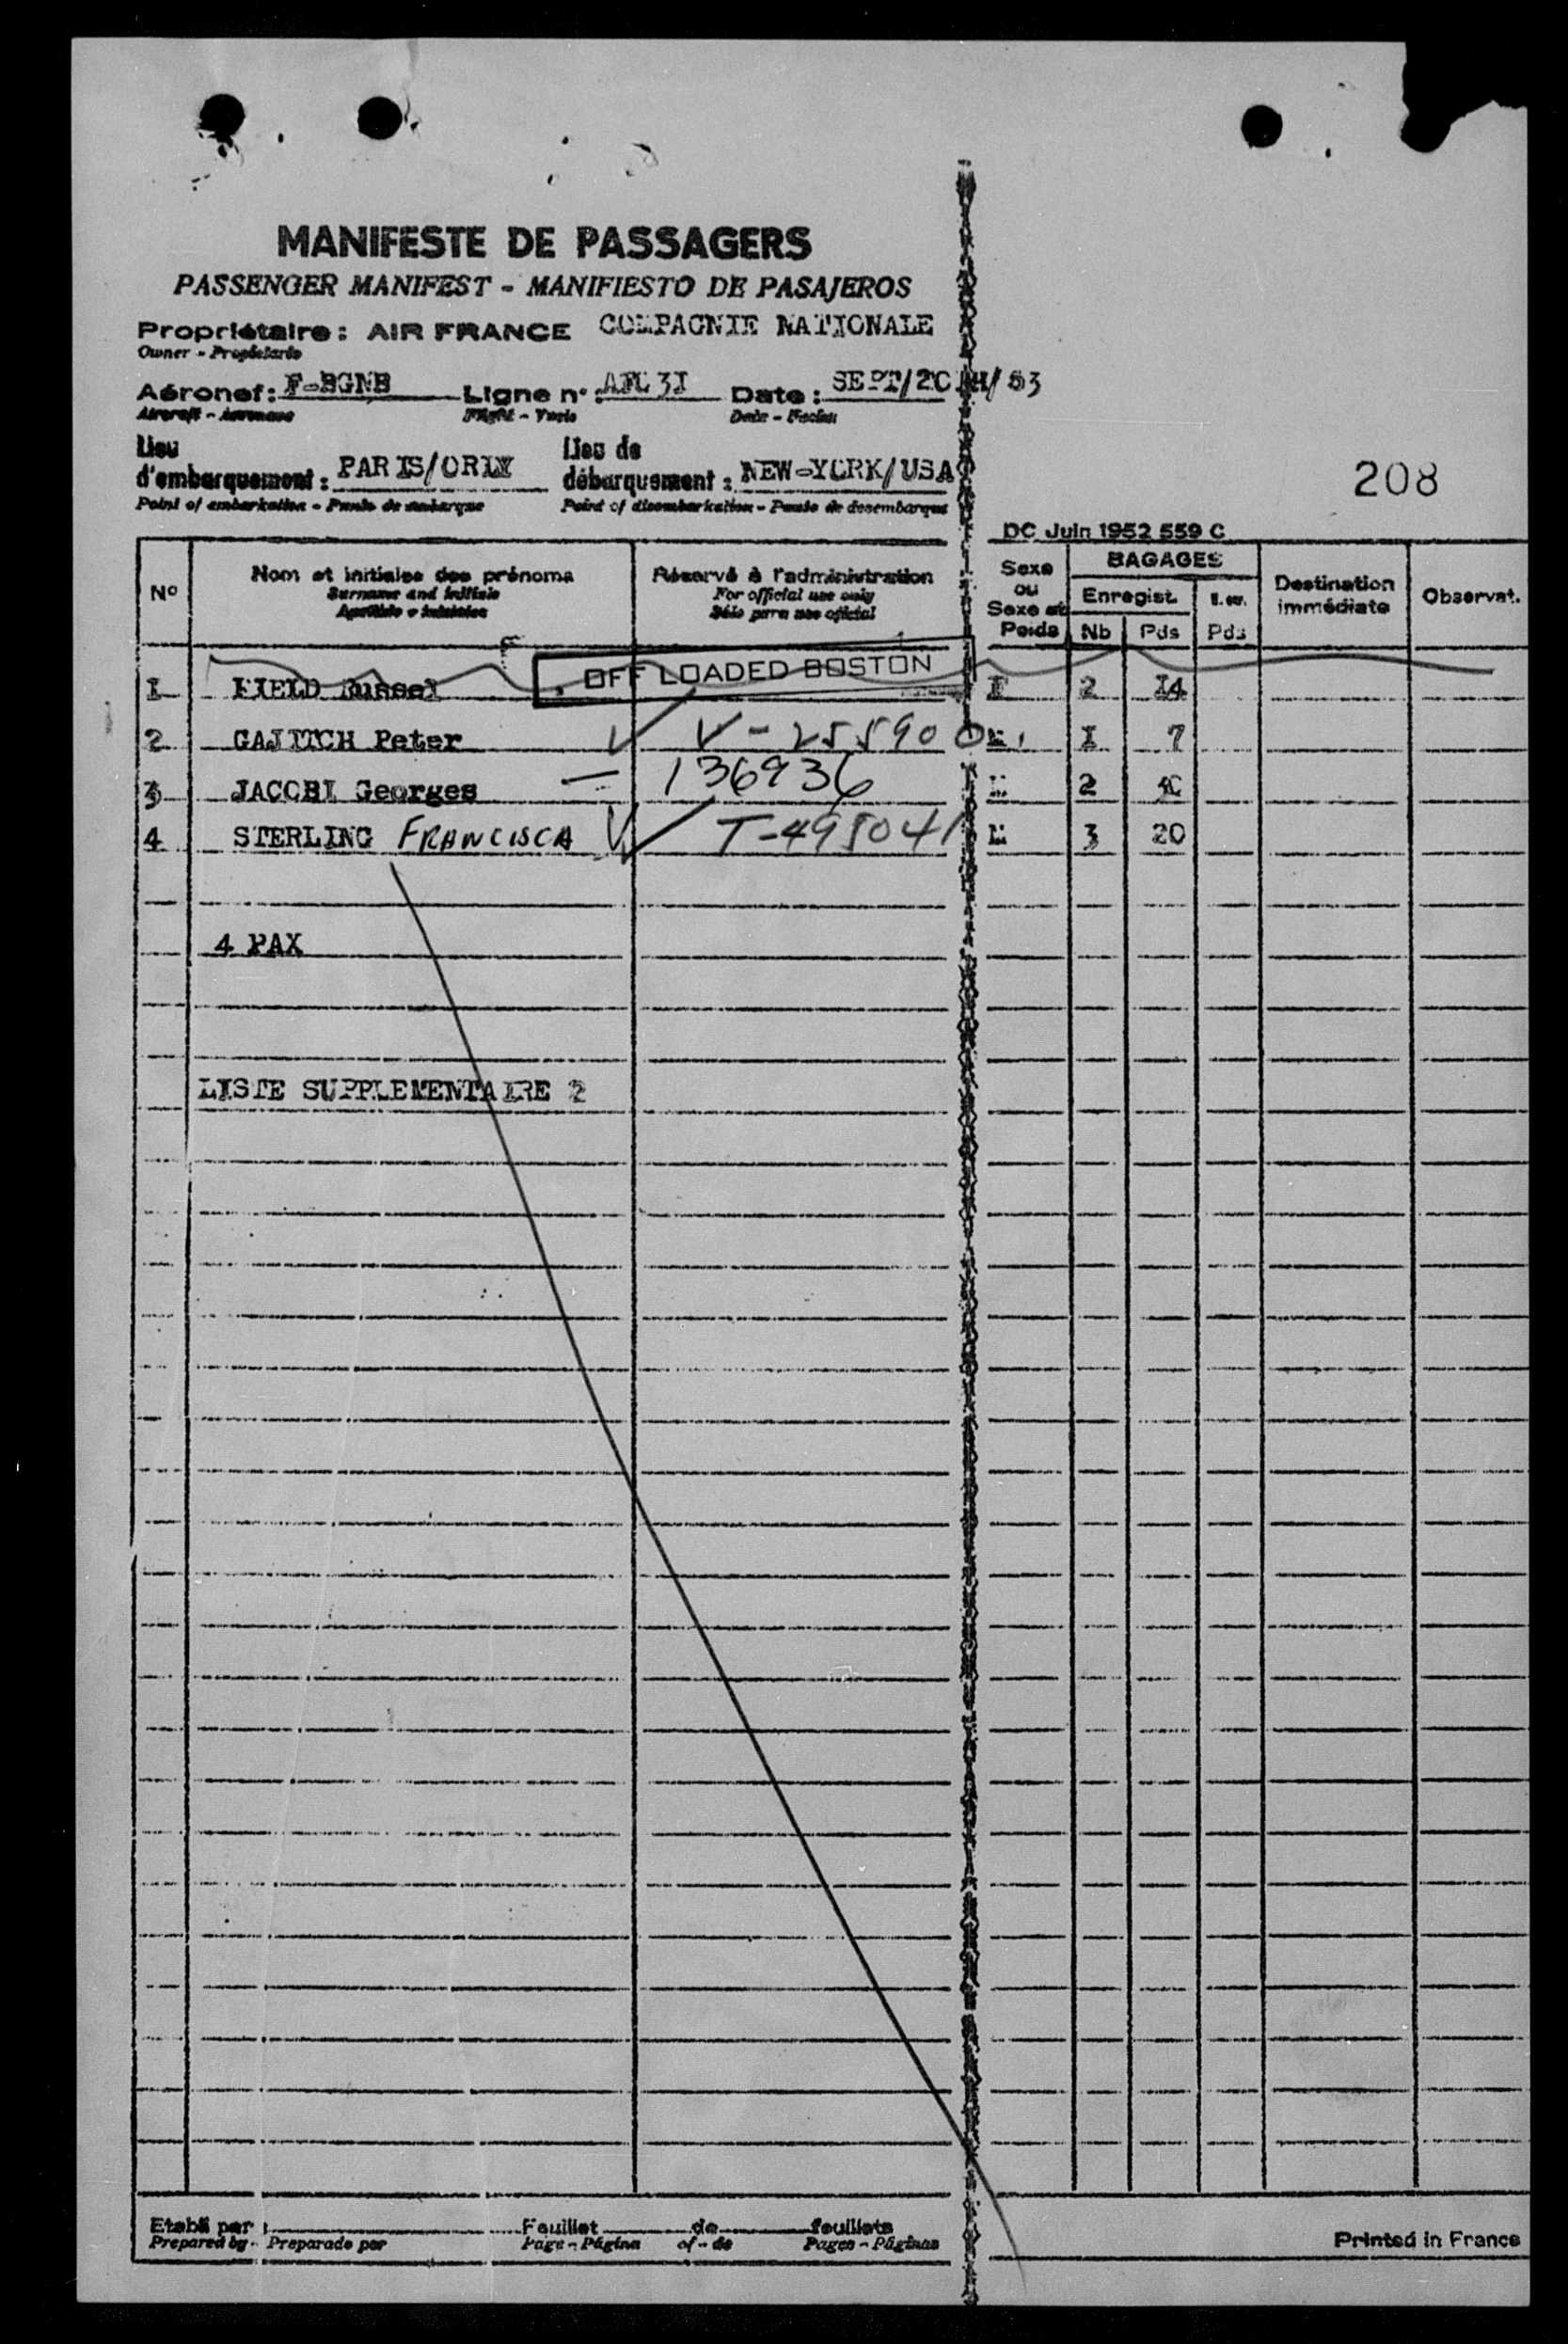 MANIFESTE DE PASSAGERS
PASSENGER MANIFEST - MANIFIESTO DE PASAJEROS
Propriétaire : AIR FRANCE COMPAGNIE NATIONALE
Owner - Propietario
Aéronef : F-BGNB Ligne n° : AFL 3I Date : SEPT/20TH/53
Aircraft - Aeronave Flight - Date - Fecha
Lieu d'embarquement : PARIS/ORLY Lieu de débarquement : NEW-YORK/USA
Point of embarkation - Punto de embarque Point of disembarkation - Punto de desembarque
208
DC Juin 1952 559 C
N° Nom et initiales des prénoms Réservé à l'administration Sexe ou Sexe et Poids BAGAGES Destination immédiate Observat.
Surname and initials For official use only Enregist.
Apellido e iniciales Sólo para uso oficial Nb Pds Pds
OFF LOADED BOSTON
I FIELD Russel 2 I4
2 GAJITCH Peter V-255900 I 7
3 JACOBI Georges 136936 2
4 STERLING FRANCISCA T-495041 3 20
4 PAX
LISTE SUPPLEMENTAIRE 2
Etabli par : Feuillet de feuillets
Prepared by - Preparado por Page - Página of - de Pages - Páginas
Printed in France